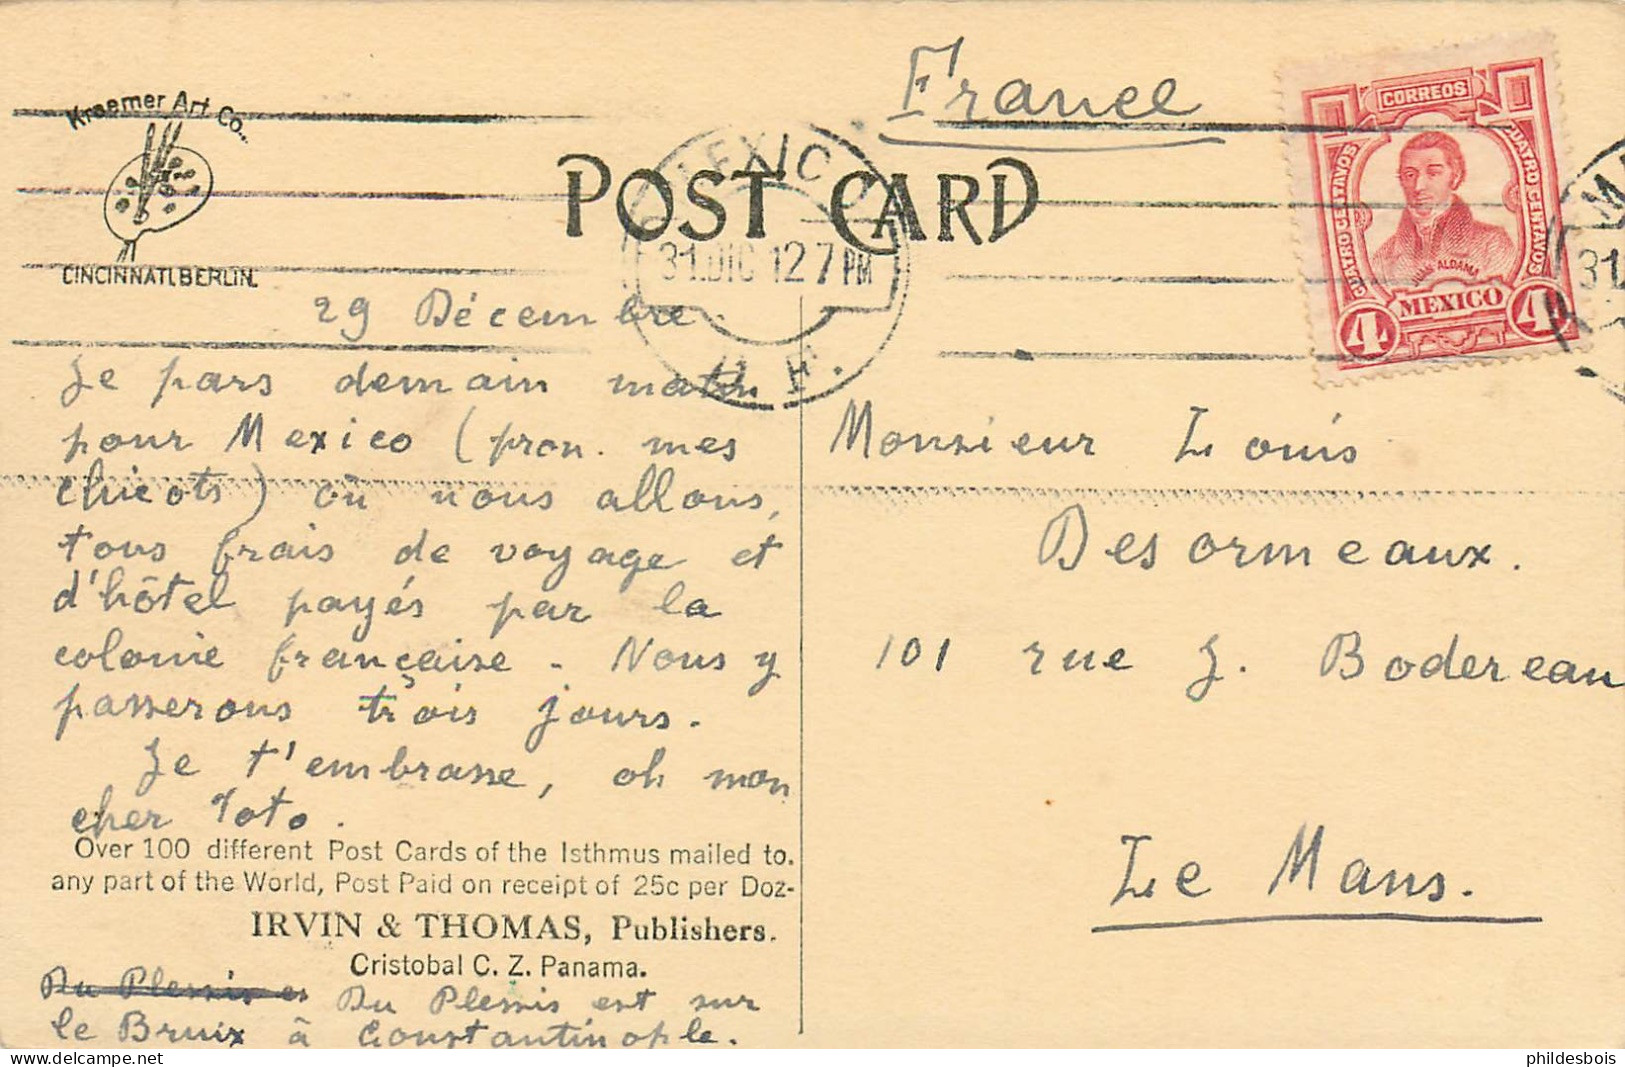 France
Kraemer Art Co.
CINCINNATI. BERLIN.
POST CARD
MEXICO
31.DIC 12 7 PM
D. F.
CORREOS
CUATRO CENTAVOS
CUATRO CENTAVOS
JUAN ALDAMA
MEXICO
4 4
29 Décembre.
Je pars demain matin
pour Mexico (pron. mes
chicots) où nous allons,
tous frais de voyage et
d'hôtel payés par la
colonie française - Nous y
passerons trois jours.
Je t'embrasse, oh mon
cher Toto.
Monsieur Louis
Desormeaux.
101 rue J. Bodereau
Le Mans.
Over 100 different Post Cards of the Isthmus mailed to.
any part of the World, Post Paid on receipt of 25c per Doz-
IRVIN & THOMAS, Publishers.
Cristobal C. Z. Panama.
Du Plessis es Du Plessis est sur
le Bruix à Constantinople.
phildesbois